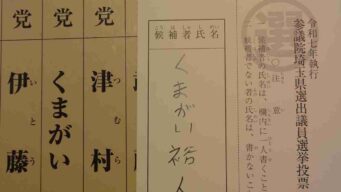 令和七年執行
参議院埼玉県選出議員選挙投票
選
注意
候補者の氏名は、欄内に一人書くこと
候補者でない者の氏名は、書かないこ
こうほしゃしめい
候補者氏名
くまがい裕人
党
つむら
津村
党
くまがい
党
いとう
伊藤